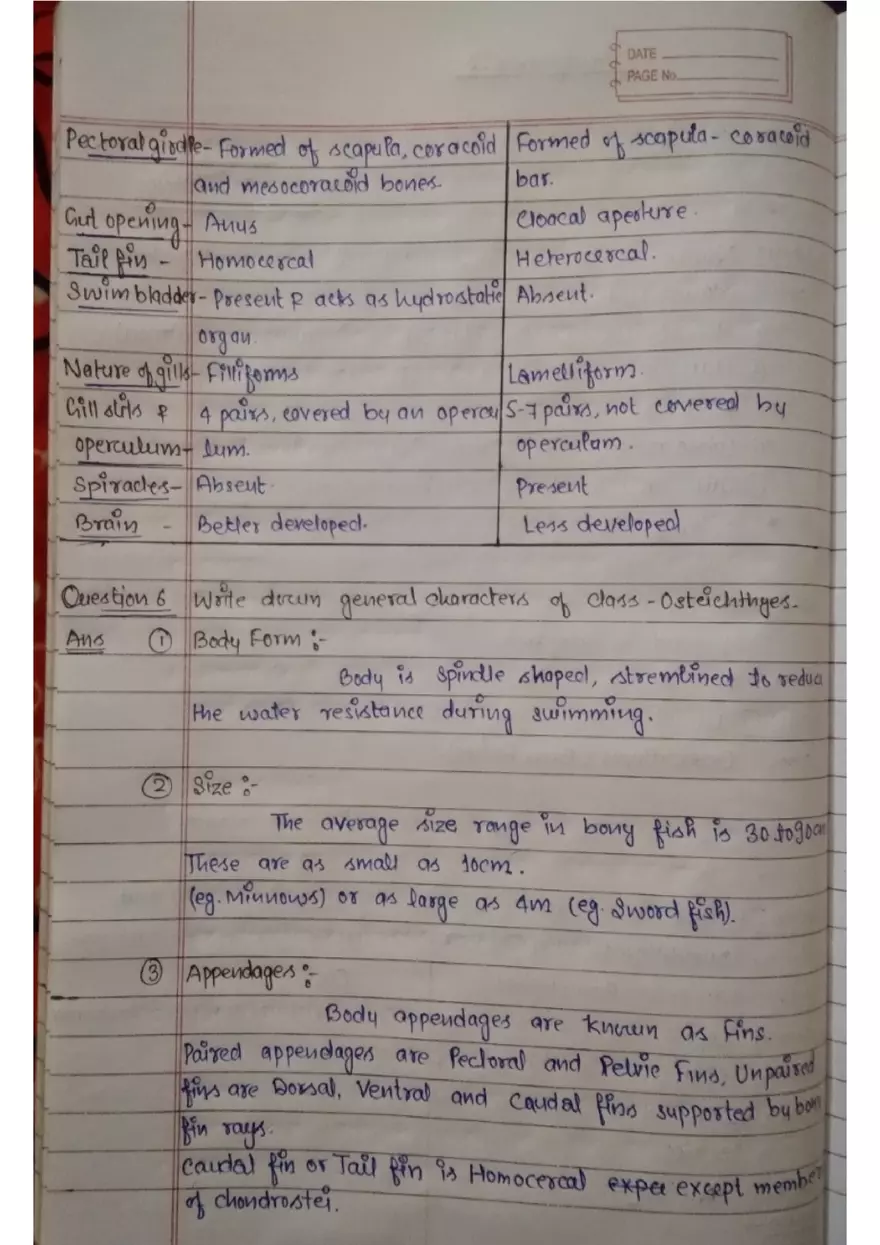 DATE
PAGE No.
Pectoral girdle - Formed of scapula, coracoid Formed of scapula - coracoid
and mesocoracoid bones. bar.
Gut opening - Anus Cloacal aperture.
Tail fin - Homocercal Heterocercal.
Swim bladder - Present & acts as hydrostatic Absent.
organ.
Nature of gills - Filliforms Lamelliform.
Gill slits & 4 pairs, covered by an opercu 5-7 pairs, not covered by
operculum - lum. operculam.
Spiracles - Absent. Present
Brain - Better developed. Less developed
Question 6 Write down general characters of class - Osteichthyes.
Ans ① Body Form :-
Body is spindle shaped, stremlined to reduc
the water resistance during swimming.
② Size :-
The average size range in bony fish is 30 to 90cm
These are as small as 10cm.
(eg. Minnows) or as large as 4m (eg. Sword fish).
③ Appendages :-
Body appendages are known as Fins.
Paired appendages are Pectoral and Pelvic Fins, Unpaired
fins are Dorsal, Ventral and Caudal fins supported by bon
fin rays.
Caudal fin or Tail fin is Homocercal expee except member
of chondrostei.